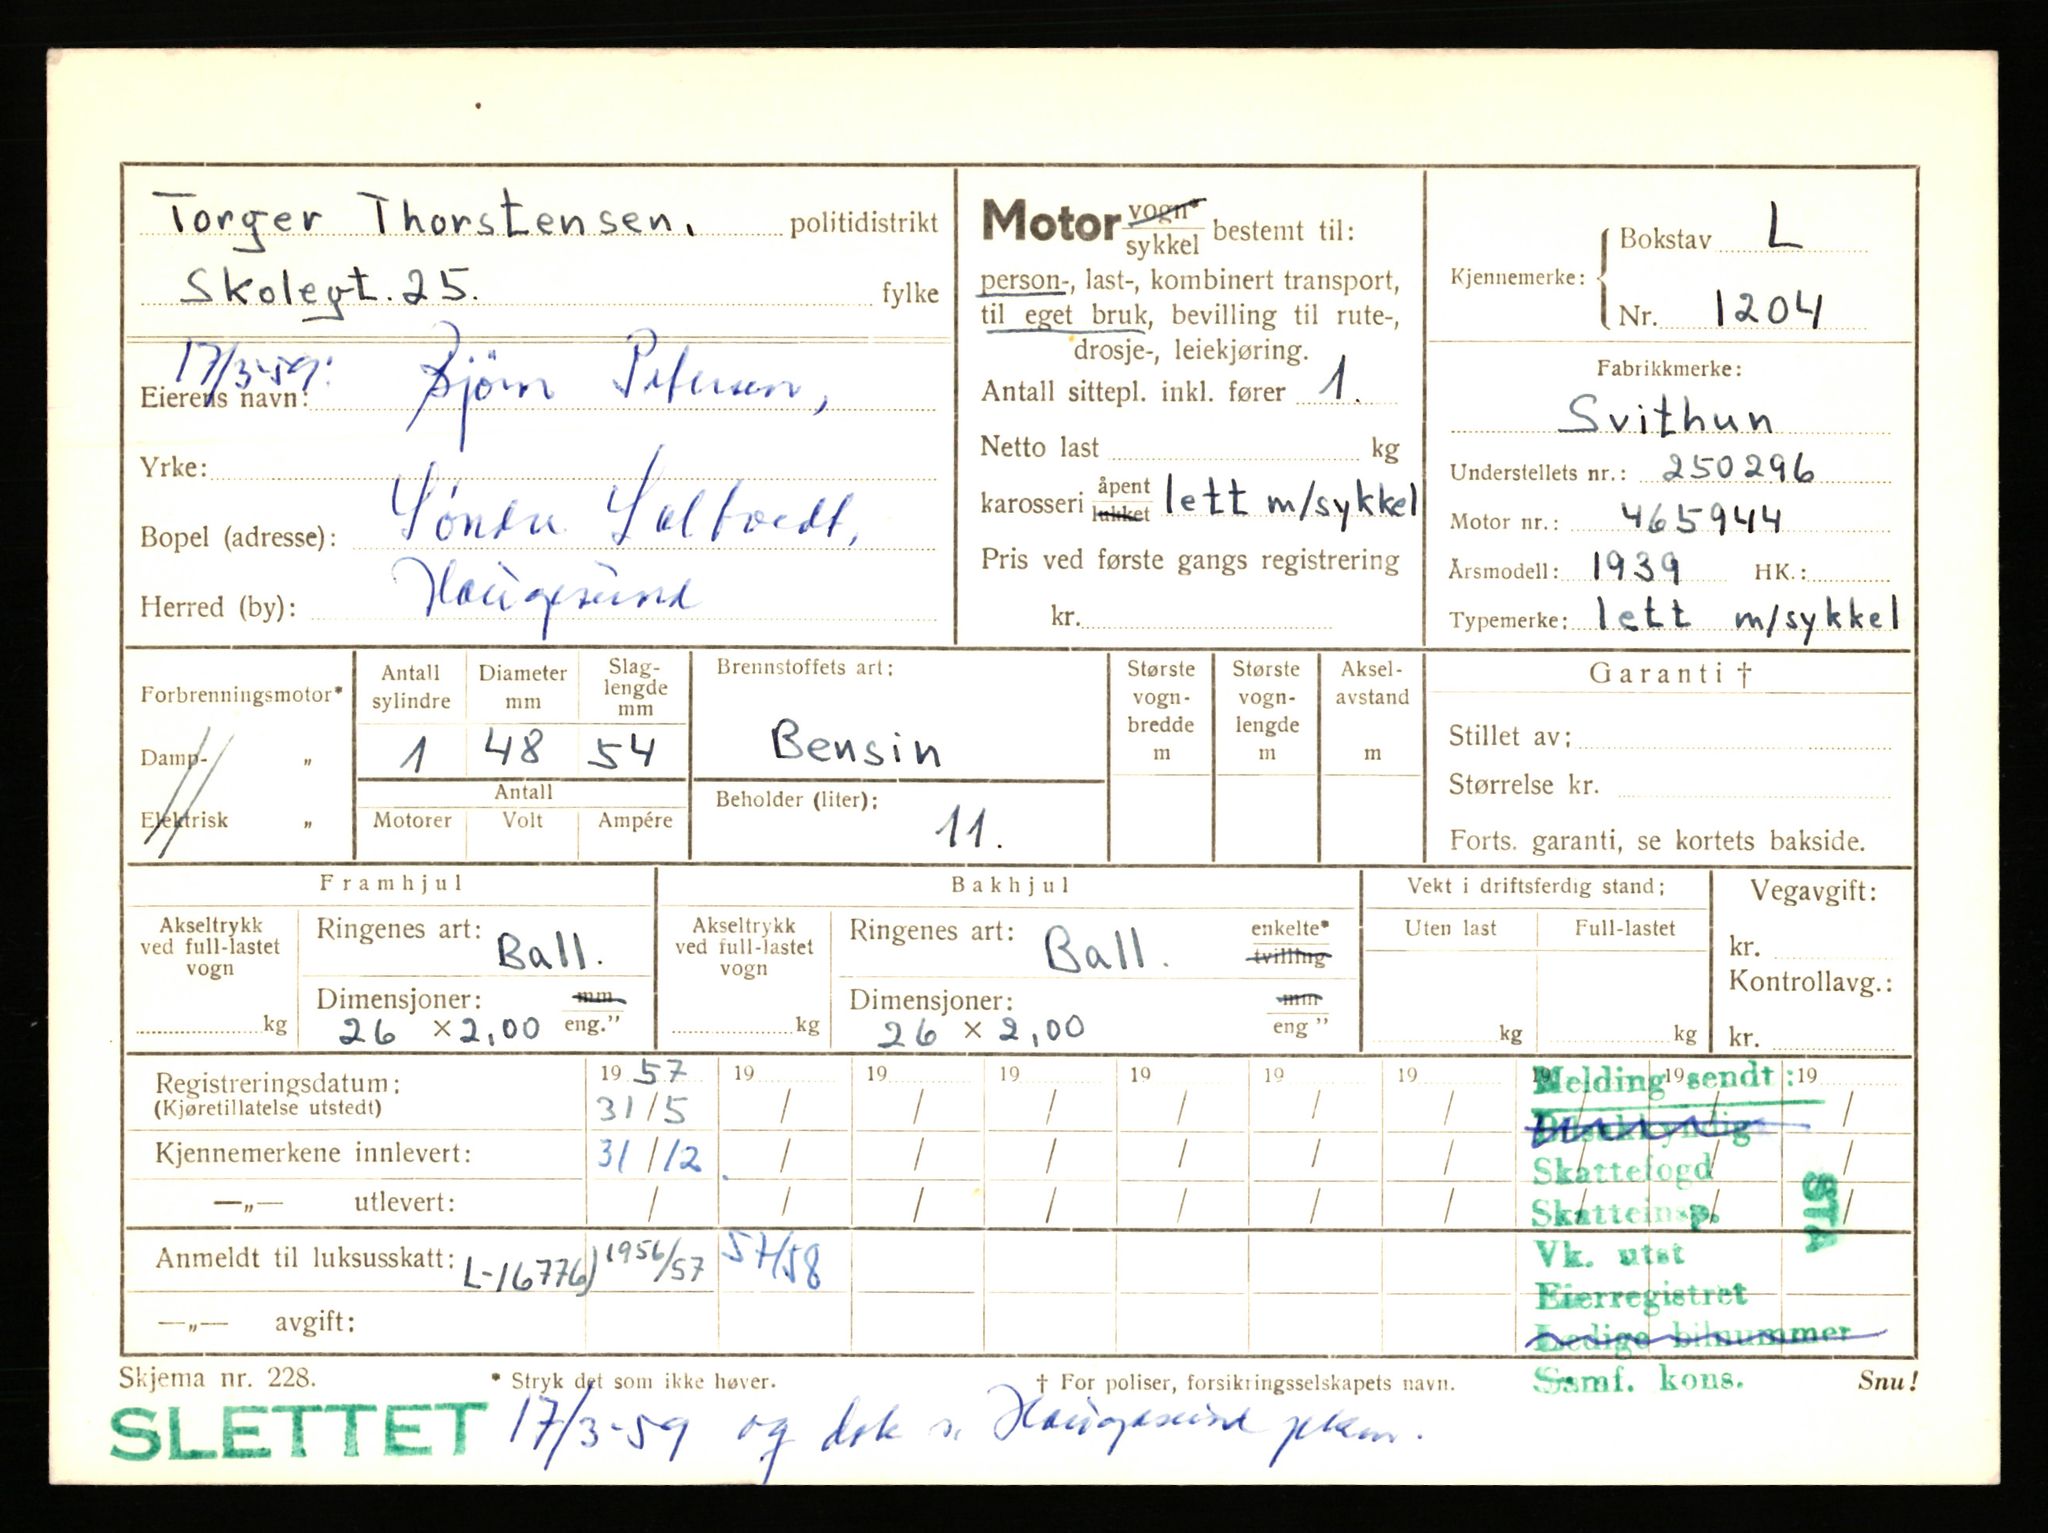 Torger Thorstensen. politidistrikt
Skolegt. 25. fylke
17/3-59: Bjørn Petersen,
Eierens navn:
Yrke:
Bopel (adresse): Søndre
Herred (by): Haugesund
Motor vogn* sykkel bestemt til:
person-, last-, kombinert transport,
til eget bruk, bevilling til rute-,
drosje-, leiekjøring.
Antall sittepl. inkl. fører 1.
Netto last kg
karosseri åpent lukket lett m/sykkel
Pris ved første gangs registrering
kr.
Kjennemerke: Bokstav L
Nr. 1204
Fabrikkmerke:
Svithun
Understellets nr.: 250296
Motor nr.: 465944
Årsmodell: 1939 HK.:
Typemerke: lett m/sykkel
Forbrenningsmotor*
Damp- „
Elektrisk „
Antall sylindre
Diameter mm
Slag-
lengde
mm
1 48 54
Antall
Motorer Volt Ampére
Brennstoffets art:
Bensin
Beholder (liter):
11.
Største
vogn-
bredde
m
Største
vogn-
lengde
m
Aksel-
avstand
m
Garanti †
Stillet av:
Størrelse kr.
Forts. garanti, se kortets bakside.
Framhjul
Akseltrykk
ved full-lastet
vogn
kg
Ringenes art: Ball.
Dimensjoner: mm
26 x 2,00 eng.”
Bakhjul
Akseltrykk
ved full-lastet
vogn
kg
Ringenes art: Ball. enkelte* tvilling
Dimensjoner: mm
26 x 2,00 eng ”
Vekt i driftsferdig stand:
Uten last Full-lastet
kg kg
Vegavgift:
kr.
Kontrollavg.:
kr.
Registreringsdatum: 19 57 19 19 19 19 19 19 19 19 19
(Kjøretillatelse utstedt) 31/5 / / / / / / / / /
Kjennemerkene innlevert: 31/12 / / / / / / / / /
—„— utlevert: / / / / / / / / / /
Anmeldt til luksusskatt: L-16776) 1956/57 57/58
—„— avgift:
Melding sendt:
Bilsakkyndig
Skattefogd
Skatteinsp.
Vk. utst
Eierregistret
Ledige bilnummer
Samf. kons.
STA
Skjema nr. 228. * Stryk det som ikke høver. † For poliser, forsikringsselskapets navn. Snu!
SLETTET 17/3-59 og Haugesund